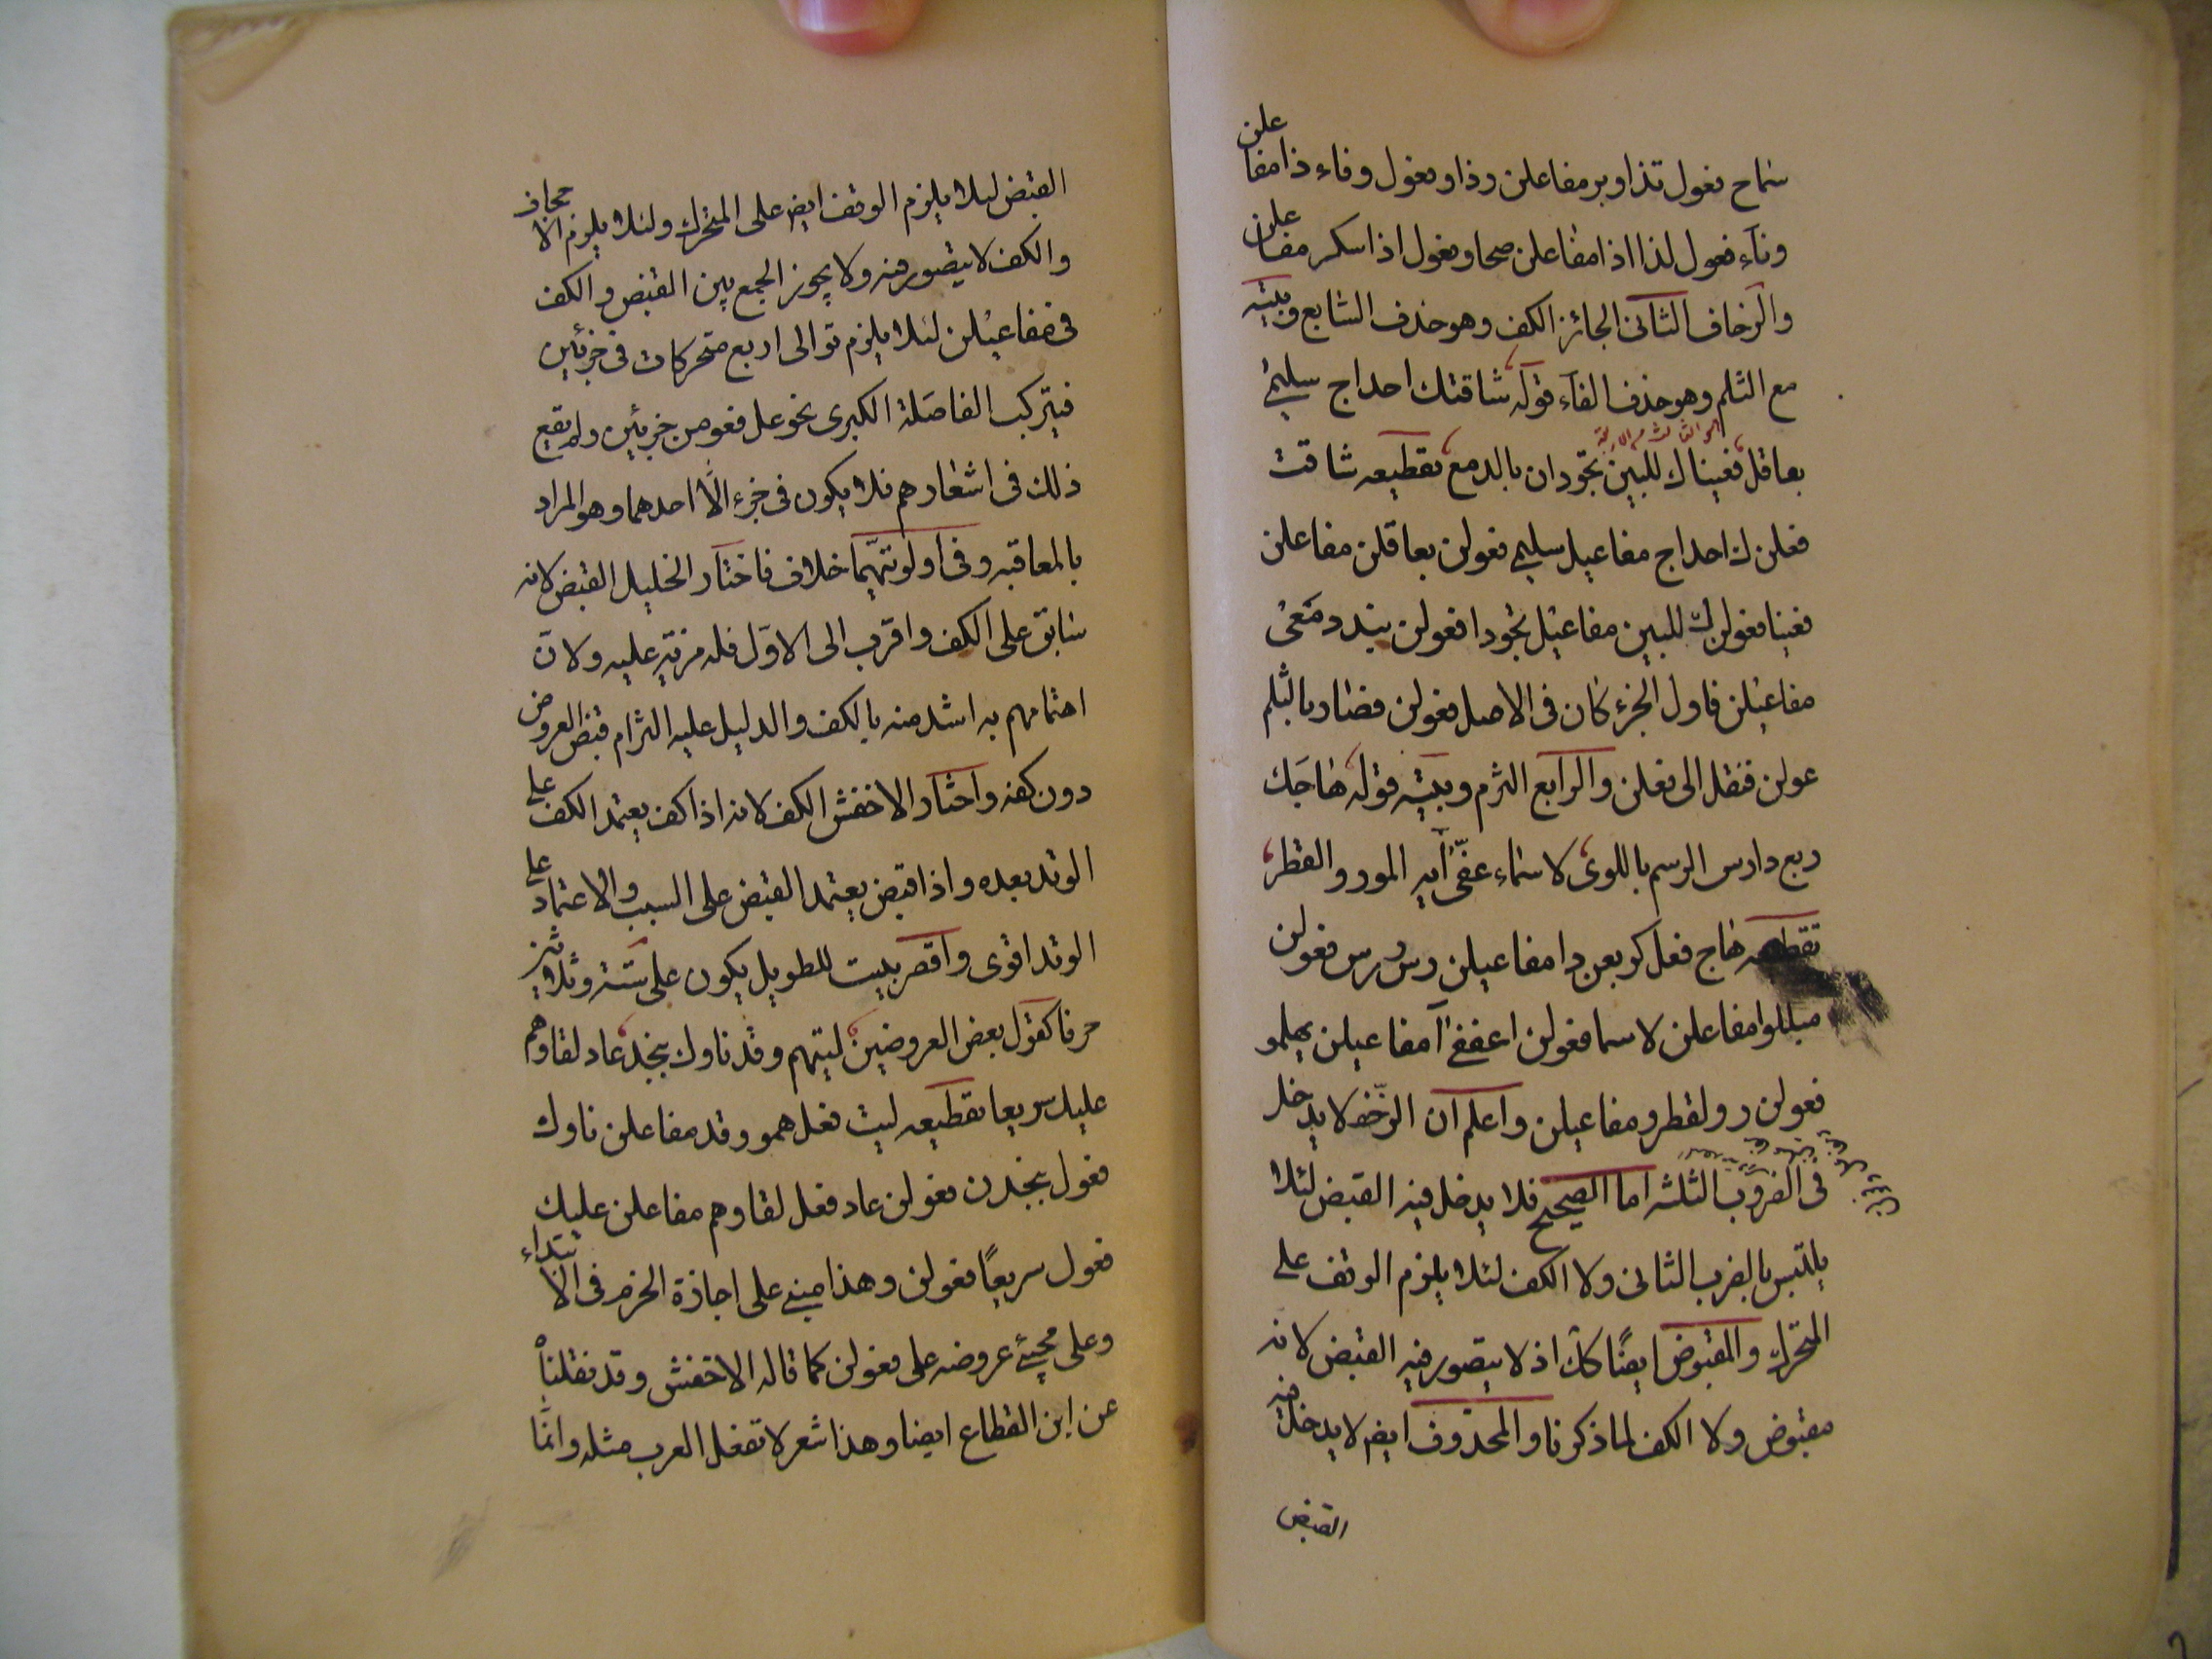 سماح فعول تذاوبر مفاعلن وذا وفعول وفاء ذا مفاعلن
ونآء فعول لذا اذا مفاعلن صحا وفعول اذا سكر مفاعلن
والزحاف الثانى الجائز الكف وهو حذف السابع وبيته
مع الثلم وهو حذف الفآء قوله شاقتك احداج سليمى
بعاقل فعيناك للبين تجودان بالدمع تقطيعه شاقت
فعلن ك احداج مفاعيل سليمى فعولن بعاقلن مفاعلن
فعينا فعولن ك للبين مفاعيل تجودا فعولن نبددمعى
مفاعيلن فاول الجزء كان فى الاصل فعولن فصار بالثلم
عولن فنقل الى فعلن والرابع الثرم وبيته قوله هاجك
ربع دارس الرسم باللوى لاسماء عفّى آيه المور والقطر
تقطيعه هاج فعل كربعن دا مفاعيلن رس رس فعولن
مبللوا مفاعلن لاسما فعولن اعففى آ مفاعيلن يهلمو
فعولن رولقطرو مفاعيلن واعلم ان الزحف لا يدخل
فى الضروب الثلثه اما الصحيح فلا يدخل فيه القبض لئلا
يلتبس بالضرب الثانى ولا الكف لئلا يلزم الوقف على
المتحرك والمقبوض ايضًا كك اذ لا يتصور فيه القبض لانه
مقبوض ولا الكف لما ذكرنا والمحذوف ايض لا يدخل فيه
القبض
القبض ليلا يلزم الوقف ايض على المتحرك ولئلا يلزم الاجحاف
والكف لا يتصور فيه ولا يجوز الجمع بين القبض والكف
فى مفاعيلن لئلا يلزم توالى اربع متحركات فى جزئين
فيتركب الفاصلة الكبرى نحو عل فعو من جزئين ولم يقع
ذلك فى اشعارهم فلا يكون فى جزء الّا احدهما وهو المراد
بالمعاقبه وفى اولويتهما خلاف فاختار الخليل القبض لانه
سابق على الكف واقرب الى الاوّل فله مزية عليه ولانّ
اهتمامهم به اشد منه بالكف والدليل عليه التزام قبض العروض
دون كفه واختار الاخفش الكف لانه اذا كف يعتمد الكف على
الوتد بعده واذا قبض يعتمد القبض على السبب والاعتماد على
الوتد اقوى واقصر بيت للطويل يكون على ستة وثلاثين
حرفا كقول بعض العروضين ليتهم وقد ناوك بنجد عاد لقاوهم
عليك سريعا تقطيعه ليت فعل همو وقد مفاعلن ناوك
فعول بنجدن فعولن عاد فعل لقاوهم مفاعلن عليك
فعول سريعًا فعولن وهذا مبنى على اجازة الخرم فى الابتداء
وعلى مجيئ عروضه على فعولن كما قاله الاخفش وقد نقلناه
عن ابن القطاع ايضا وهذا شعر لا تفعل العرب مثله وانّما